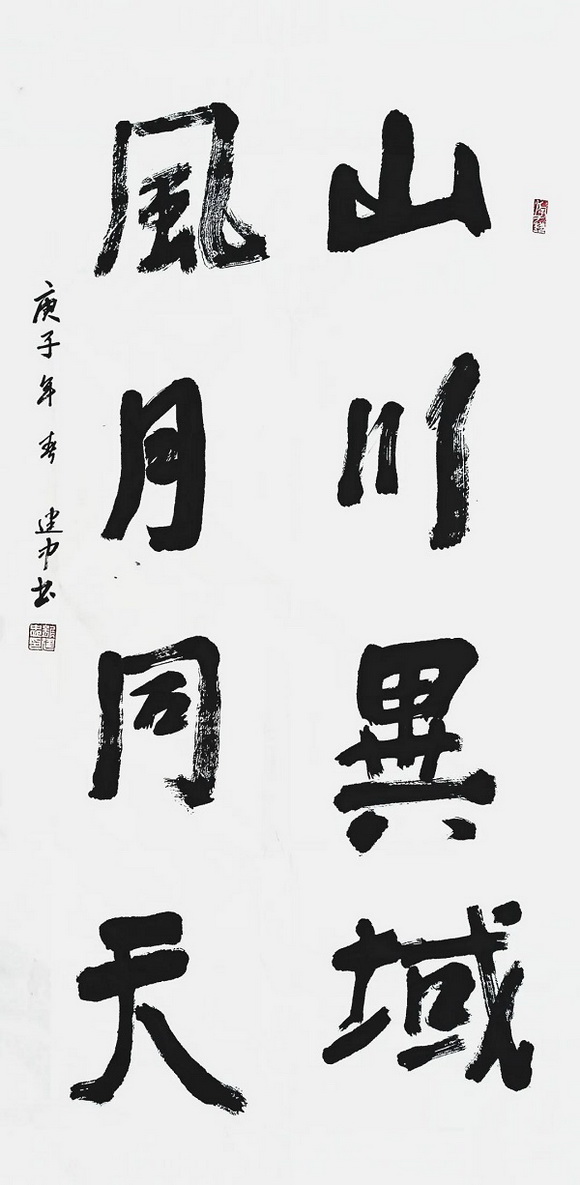 山川異域
風月同天
庚子年春 建中书